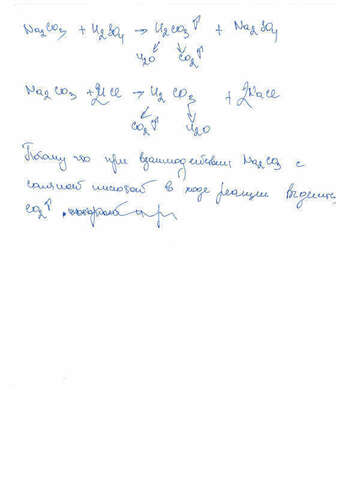 Na2CO3 + H2SO4 → H2CO3↑ + Na2SO4
H2O CO2↑
Na2CO3 + 2HCl → H2CO3 + 2NaCl
CO2↑ H2O
Потому что при взаимодействии Na2CO3 с
соляной кислотой в ходе реакции выделит.
CO2↑